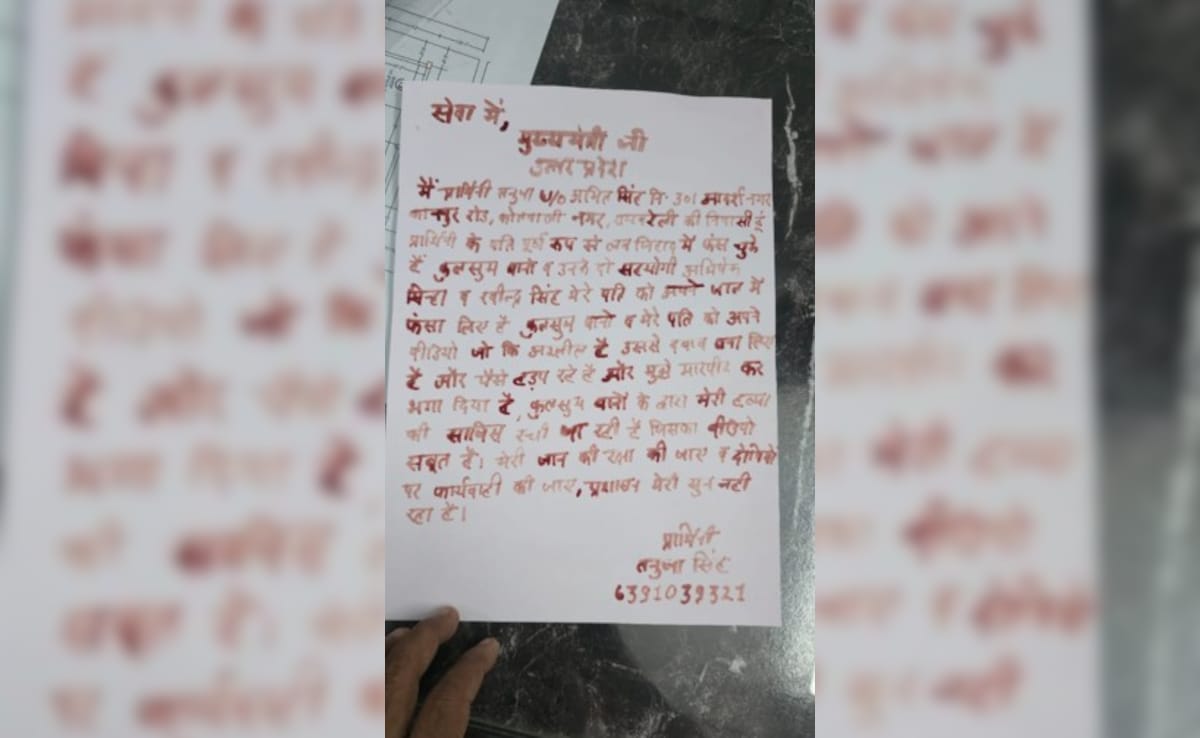 सेवा में,
मुख्यमंत्री जी
उत्तर प्रदेश
मैं प्रार्थिनी तनुजा W/o अमित सिंह नि. 301 आदर्श नगर
कानपुर रोड, कोतवाली नगर, रायबरेली की निवासी हूं
प्रार्थिनी के पति पूर्ण रूप से लव जिहाद में फंस चुके
हैं कुलसुम बानो व उनके दो सहयोगी अभिषेक
सिन्हा व रवीन्द्र सिंह मेरे पति को अपने जाल में
फंसा लिए है कुलसुम बानो व मेरे पति को अपने
वीडियो जो कि अश्लील है उससे दबाव बना लिए
है और पैसे हड़प रहे है और मुझे मारपीट कर
भगा दिया है, कुलसुम बानो के द्वारा मेरी हत्या
की साजिस रची जा रही है जिसका वीडियो
सबूत है। मेरी जान की रक्षा की जाए व दोषियों
पर कार्यवाही की जाए, प्रशासन मेरी सुन नही
रहा है।
प्रार्थिनी
तनुजा सिंह
6391039321